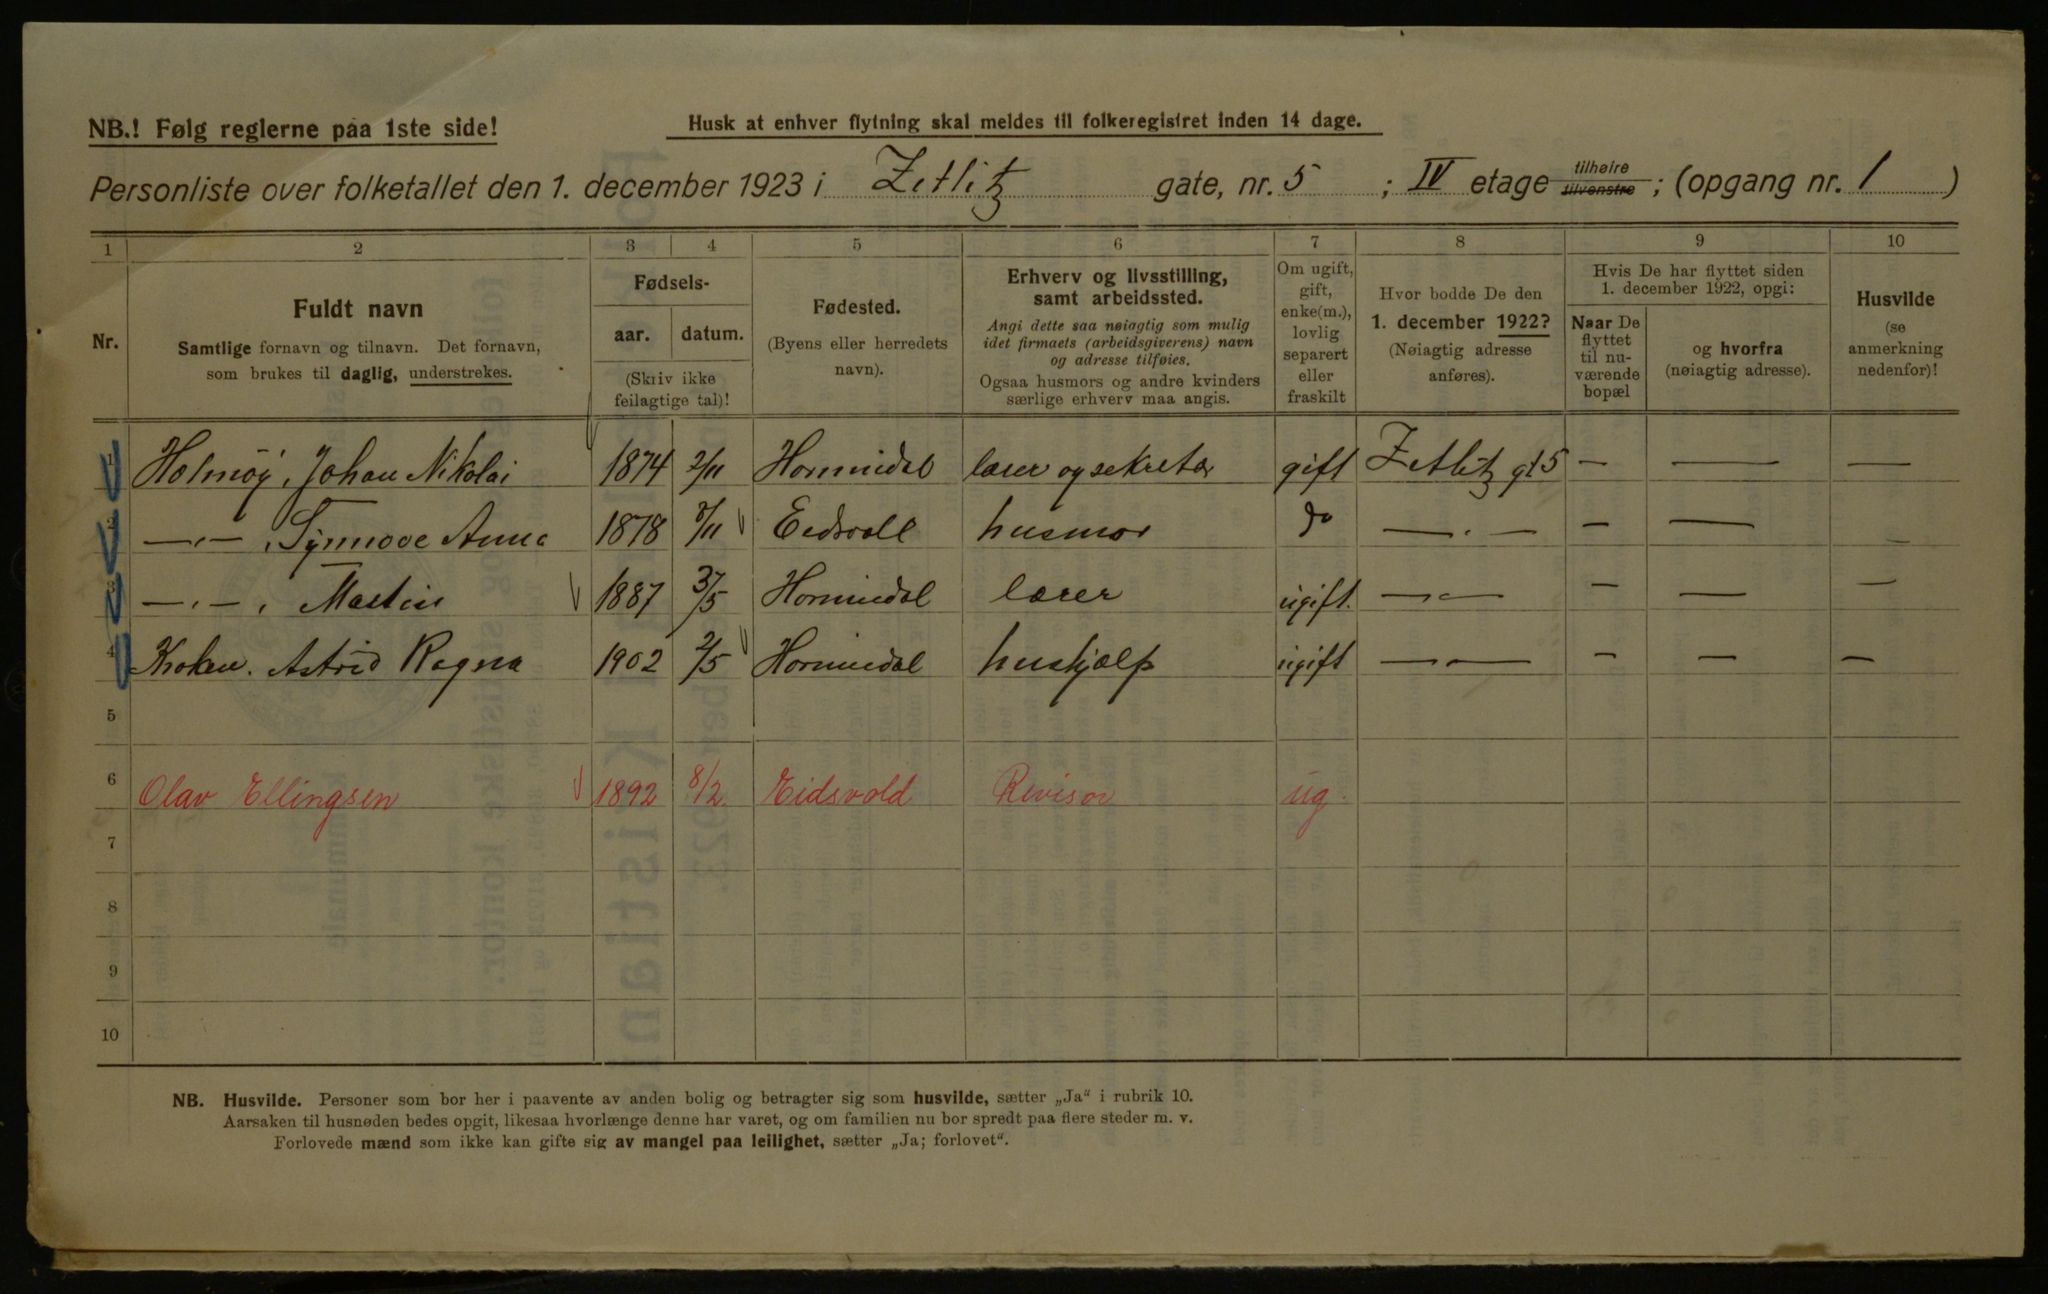 NB.! Følg reglerne paa 1ste side!
Husk at enhver flytning skal meldes til folkeregistret inden 14 dage.
Personliste over folketallet den 1. december 1923 i Zetlitz gate, nr. 5 ; IV etage tilhøire tilvenstre ; (opgang nr. 1 )
1 2 3 4 5 6 7 8 9 10
Nr.
Fuldt navn
Samtlige fornavn og tilnavn. Det fornavn,
som brukes til daglig, understrekes.
Fødsels-
aar. datum.
(Skriv ikke
feilagtige tal)!
Fødested.
(Byens eller herredets
navn).
Erhverv og livsstilling,
samt arbeidssted.
Angi dette saa nøiagtig som mulig
idet firmaets (arbeidsgiverens) navn
og adresse tilføies.
Ogsaa husmors og andre kvinders
særlige erhverv maa angis.
Om ugift,
gift,
enke(m.),
lovlig
separert
eller
fraskilt
Hvor bodde De den
1. december 1922?
(Nøiagtig adresse
anføres).
Hvis De har flyttet siden
1. december 1922, opgi:
Naar De
flyttet
til nu-
værende
bopæl
og hvorfra
(nøiagtig adresse).
Husvilde
(se
anmerkning
nedenfor)!
1 Holmøy, Johan Nikolai 1874 2/11 Hornindal lærer og sekretær gift Zetlitz gt 5 — — —
2 —„—, Synnøve Anna 1878 /11 Eidsvoll husmor do —„— — — —
3 —„—, Martin 1887 /5 Hornindal lærer ugift. —„— — — —
4 Kroken. Astrid Ragna 1902 2/5 Hornindal hushjælp ugift —„— — — —
5
6 Olav Ellingsen 1892 8/2 Eidsvold Revisor ug.
7
8
9
10
NB. Husvilde. Personer som bor her i paavente av anden bolig og betragter sig som husvilde, sætter „Ja“ i rubrik 10.
Aarsaken til husnøden bedes opgit, likesaa hvorlænge denne har varet, og om familien nu bor spredt paa flere steder m. v.
Forlovede mænd som ikke kan gifte sig av mangel paa leilighet, sætter „Ja; forlovet“.